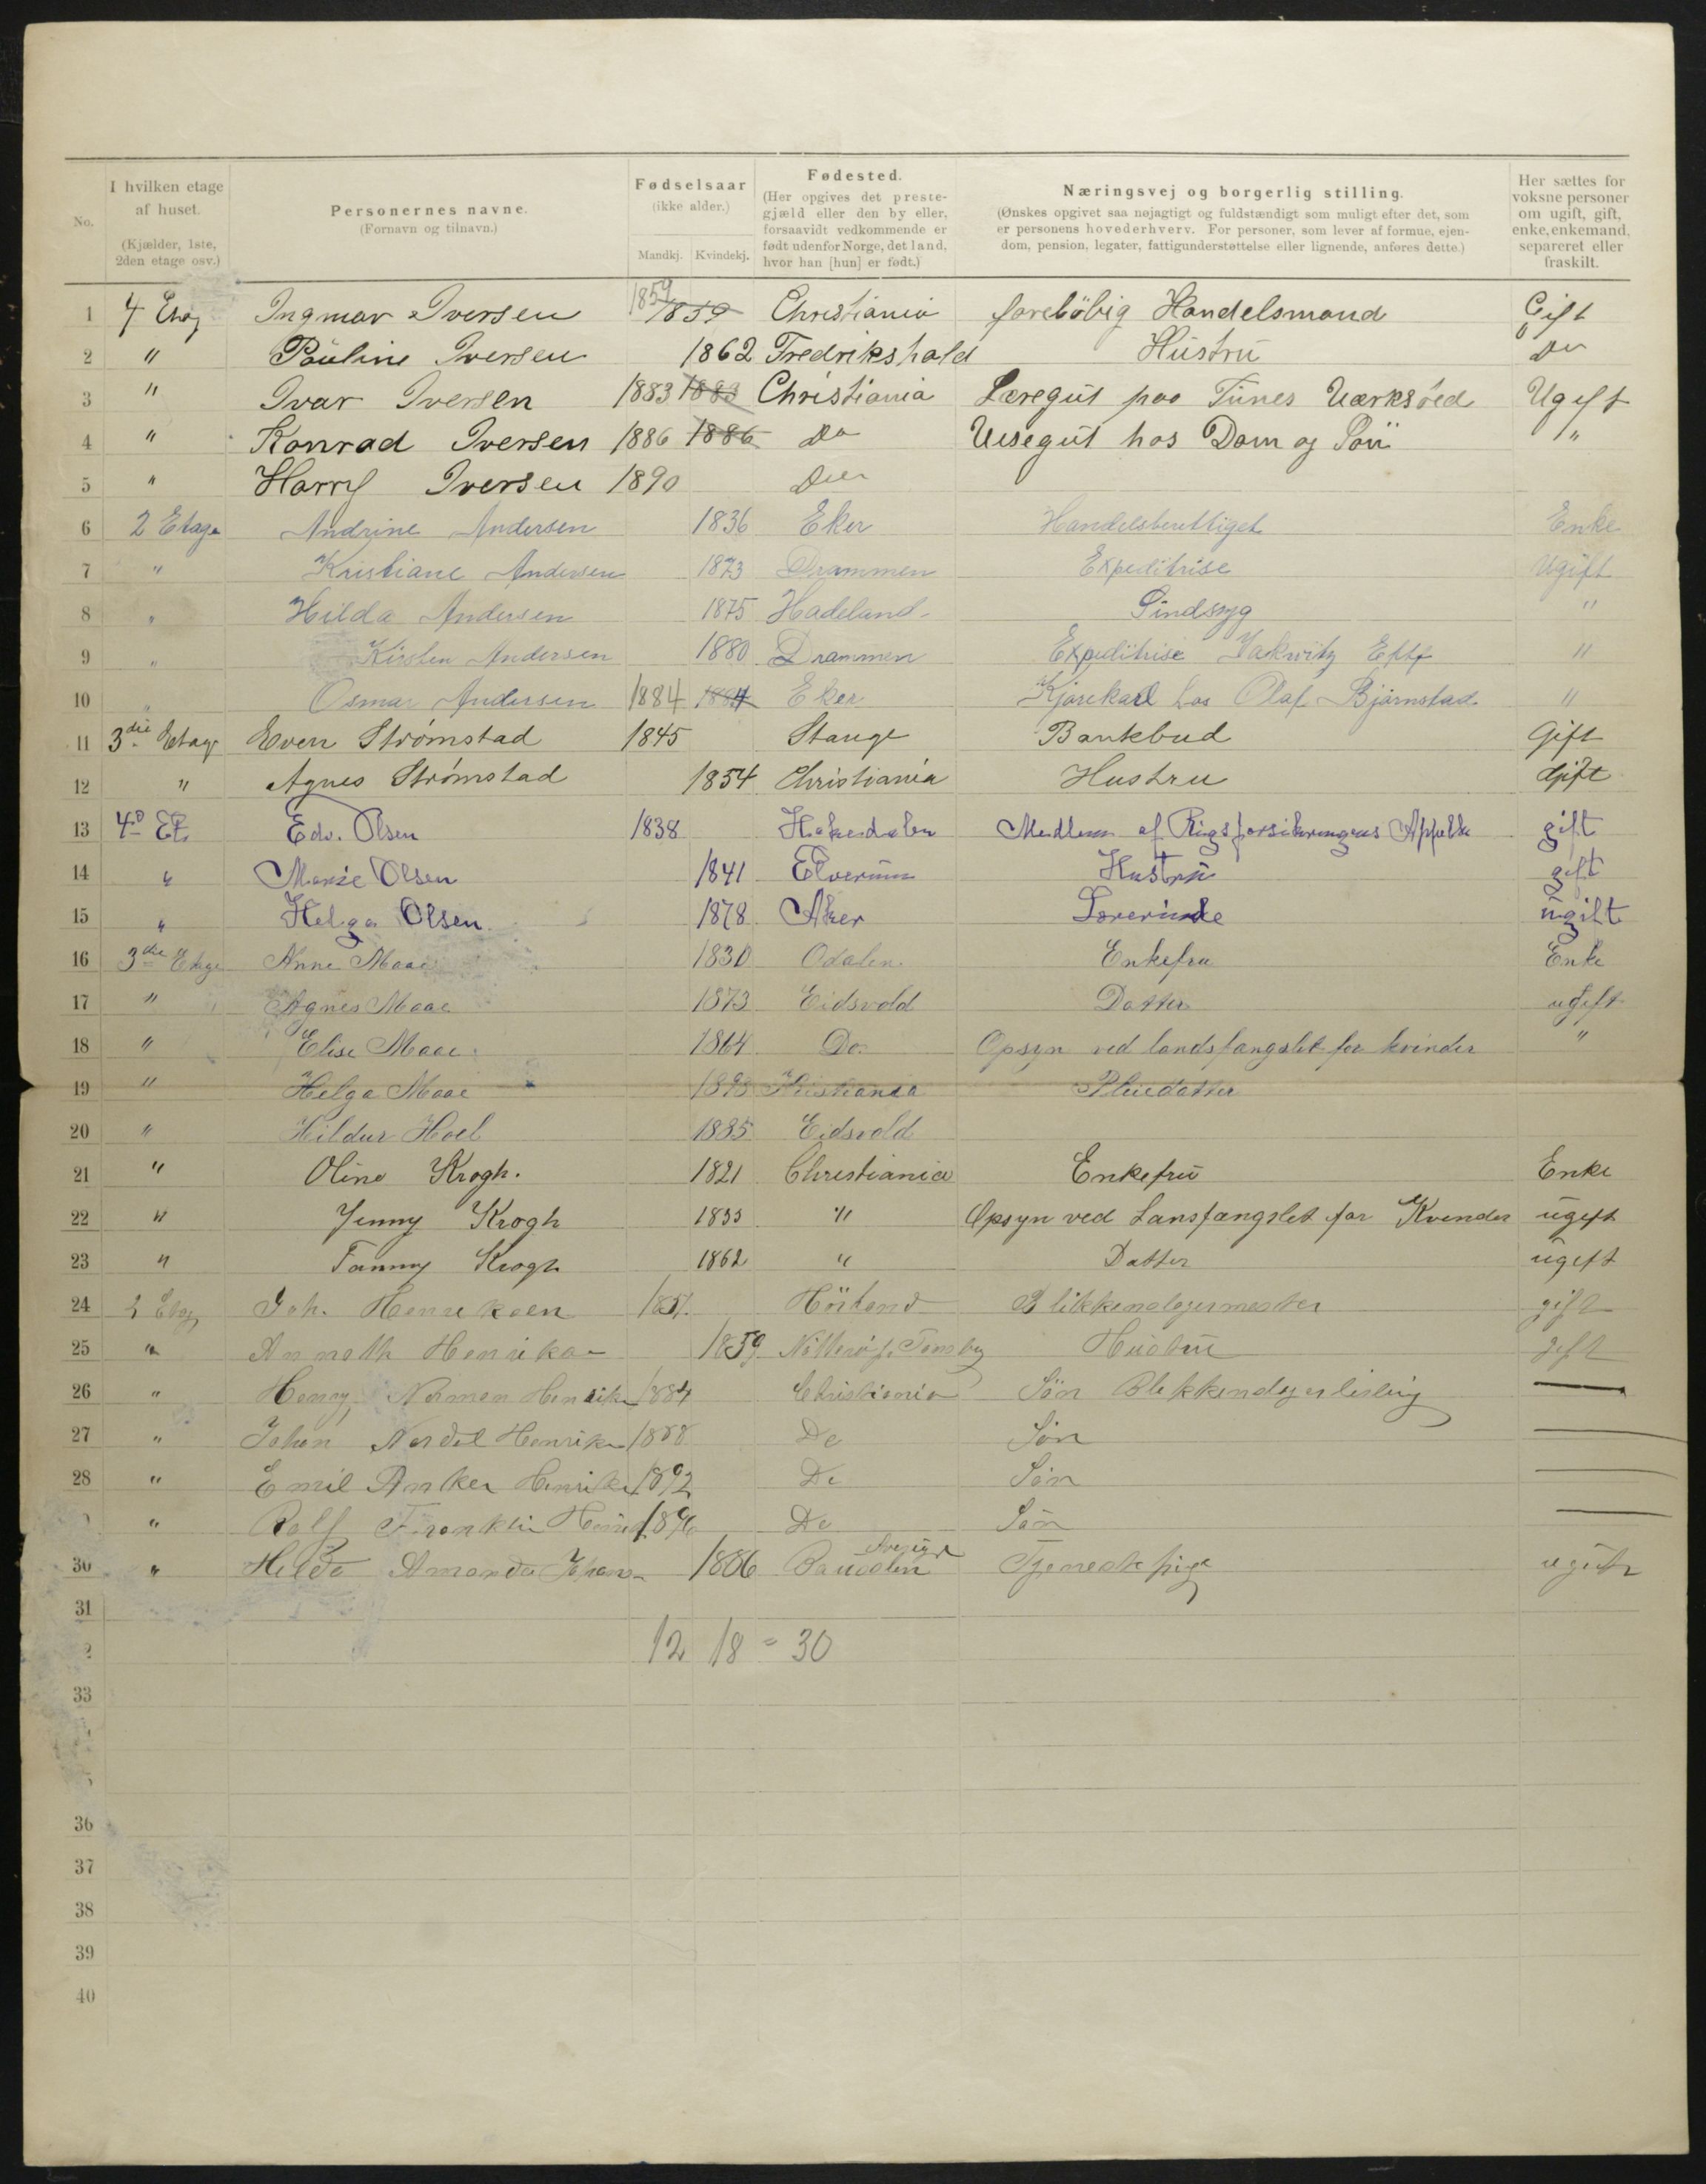 No.
I hvilken etage af huset.
(Kjælder, 1ste, 2den etage osv.)
Personernes navne.
(Fornavn og tilnavn.)
Fødselsaar
(ikke alder.)
Mandkj. Kvindekj.
Fødested.
(Her opgives det prestegjæld eller den by eller, forsaavidt vedkommende er født udenfor Norge, det land, hvor han [hun] er født.)
Næringsvej og borgerlig stilling.
(Ønskes opgivet saa nøjagtigt og fuldstændigt som muligt efter det, som er personens hovederhverv. For personer, som lever af formue, ejendom, pension, legater, fattigunderstøttelse eller lignende, anføres dette.)
Her sættes for voksne personer om ugift, gift, enke, enkemand, separeret eller fraskilt.
1 4 Etag Ingmar Iversen 1859 1859 Christiania Handelsmand Gift
2 " Pauline Iversen 1862 Fredrikshald Hustru Do
3 " Ivar Iversen 1883 1883 Christiania Læregut paa Tunes Værksted Ugift
4 " Konrad Iversen 1886 1886 Do Visegut hos Dam og Søn "
5 " Harry Iversen 1890 Do
6 2 Etage Andrine Andersen 1836 Eker Handelsberettiget Enke
7 " Kristiane Andersen 1873 Drammen Expeditrise Ugift
8 " Hilda Andersen 1875 Hadeland Sindsyg "
9 " Kirsten Andersen 1880 Drammen Expeditrise Eftf "
10 " Osmar Andersen 1884 1884 Eker Kjørekarl hos Olaf Bjørnstad "
11 3die Etage Even Strømstad 1845 Stange Bankbud Gift
12 " Agnes Strømstad 1854 Christiania Hustru Gift
13 4de Et. Edv. Olsen 1838 Hakedalen Medlem af Rigsforsikringens gift
14 " Marie Olsen 1841 Elverum Hustru gift
15 " Helga Olsen 1878 Aker Lærerinde ugift
16 3die Etage Anne Maae 1830 Odalen Enkefru Enke
17 " Agnes Maae 1873 Eidsvold Datter ugift
18 " Elise Maae 1864 Do. Opsyn ved landsfangslet for kvinder "
19 " Helga Maae Kristiania Pleiedatter
20 " Hildur Hoel 1885 Eidsvold
21 " Oline Krogh. 1821 Christiania Enkefru Enke
22 " Jenny Krogh 1855 " Opsyn ved Lansfangslet for Kvender ugift
23 " Fanny Krogh 1862 " Datter ugift
24 2 Etag Joh. Henriksen 1857. Blikkenslagermester gift
25 " Henriksen 1859 Nøtterø p. Tønsberg Hustru gift
26 " Henry Norman Henriksen 1884 Christiania Søn Blikkenslagerlærling —
27 " Johan Henriksen 1888 Do Søn —
28 " Emil Anker Henriksen 1892 Do Søn —
" Rolf Franklin 1896 Do Søn —
30 " Hilda Amanda Johans. 1886 Sverige Tjenestepige ugift
31
12 18 = 30
33
36
37
38
39
40